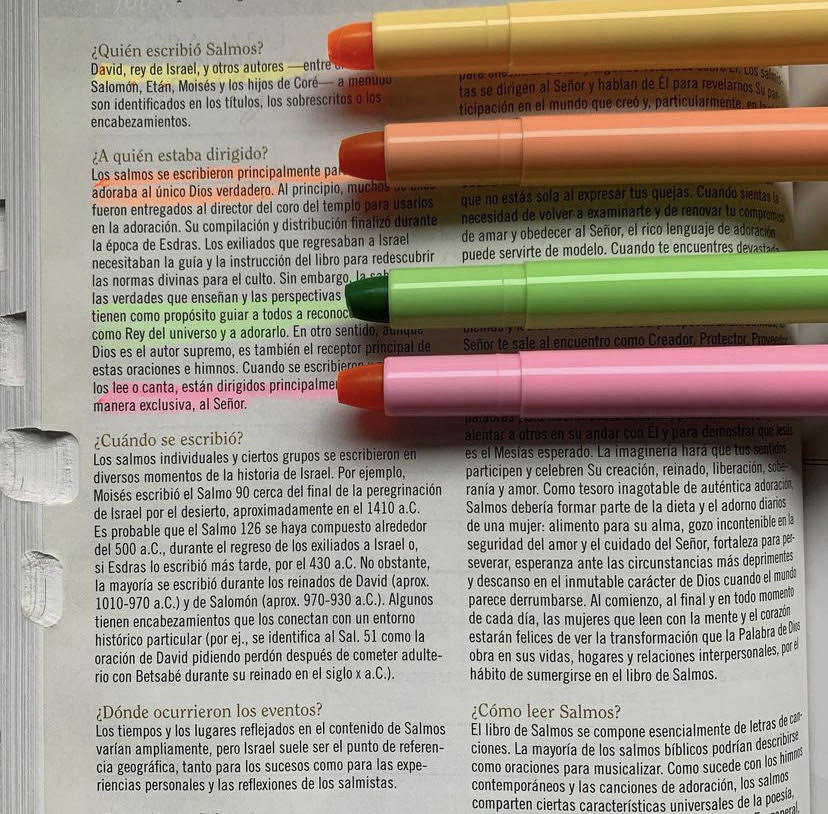 ¿Quién escribió Salmos?
David, rey de Israel, y otros autores —entre
Salomón, Etán, Moisés y los hijos de Coré— a menudo
son identificados en los títulos, los sobrescritos o los
encabezamientos.
¿A quién estaba dirigido?
Los salmos se escribieron principalmente
adoraba al único Dios verdadero. Al principio, muchos
fueron entregados al director del coro del templo para usarlos
en la adoración. Su compilación y distribución finalizó durante
la época de Esdras. Los exiliados que regresaban a Israel
necesitaban la guía y la instrucción del libro para redescubrir
las normas divinas para el culto. Sin embargo, la
las verdades que enseñan y las perspectivas
tienen como propósito guiar a todos a
como Rey del universo y a adorarlo. En otro sentido, aunque
Dios es el autor supremo, es también el receptor principal de
estas oraciones e himnos. Cuando se
los lee o canta, están dirigidos
manera exclusiva, al Señor.
¿Cuándo se escribió?
Los salmos individuales y ciertos grupos se escribieron en
diversos momentos de la historia de Israel. Por ejemplo,
Moisés escribió el Salmo 90 cerca del final de la peregrinación
de Israel por el desierto, aproximadamente en el 1410 a.C.
Es probable que el Salmo 126 se haya compuesto alrededor
del 500 a.C., durante el regreso de los exiliados a Israel o,
si Esdras lo escribió más tarde, por el 430 a.C. No obstante,
la mayoría se escribió durante los reinados de David (aprox.
1010-970 a.C.) y de Salomón (aprox. 970-930 a.C.). Algunos
tienen encabezamientos que los conectan con un entorno
histórico particular (por ej., se identifica al Sal. 51 como la
oración de David pidiendo perdón después de cometer adulte-
rio con Betsabé durante su reinado en el siglo x a.C.).
¿Dónde ocurrieron los eventos?
Los tiempos y los lugares reflejados en el contenido de Salmos
varían ampliamente, pero Israel suele ser el punto de referen-
cia geográfica, tanto para los sucesos como para las expe-
riencias personales y las reflexiones de los salmistas.
Los
tas se dirigen al Señor y hablan de Él para revelarnos Su par-
ticipación en el mundo que creó y, particularmente, en
que no estás sola al expresar tus quejas. Cuando sientas la
necesidad de volver a examinarte y de renovar tu compromiso
de amar y obedecer al Señor, el rico lenguaje de adoración
puede servirte de modelo. Cuando te encuentres
Señor te sale al encuentro como Creador, Protector,
alentar a otros en su andar con Él y para demostrar que Jesús
es el Mesías esperado. La imaginería hará que tus sentidos
participen y celebren Su creación, reinado, liberación, sobe-
ranía y amor. Como tesoro inagotable de auténtica adoración,
Salmos debería formar parte de la dieta y el adorno diarios
de una mujer: alimento para su alma, gozo incontenible en la
seguridad del amor y el cuidado del Señor, fortaleza para per-
severar, esperanza ante las circunstancias más deprimentes
y descanso en el inmutable carácter de Dios cuando el mundo
parece derrumbarse. Al comienzo, al final y en todo momento
de cada día, las mujeres que leen con la mente y el corazón
estarán felices de ver la transformación que la Palabra de Dios
obra en sus vidas, hogares y relaciones interpersonales, por el
hábito de sumergirse en el libro de Salmos.
¿Cómo leer Salmos?
El libro de Salmos se compone esencialmente de letras de can-
ciones. La mayoría de los salmos bíblicos podrían describirse
como oraciones para musicalizar. Como sucede con los himnos
contemporáneos y las canciones de adoración, los salmos
comparten ciertas características universales de la poesía,